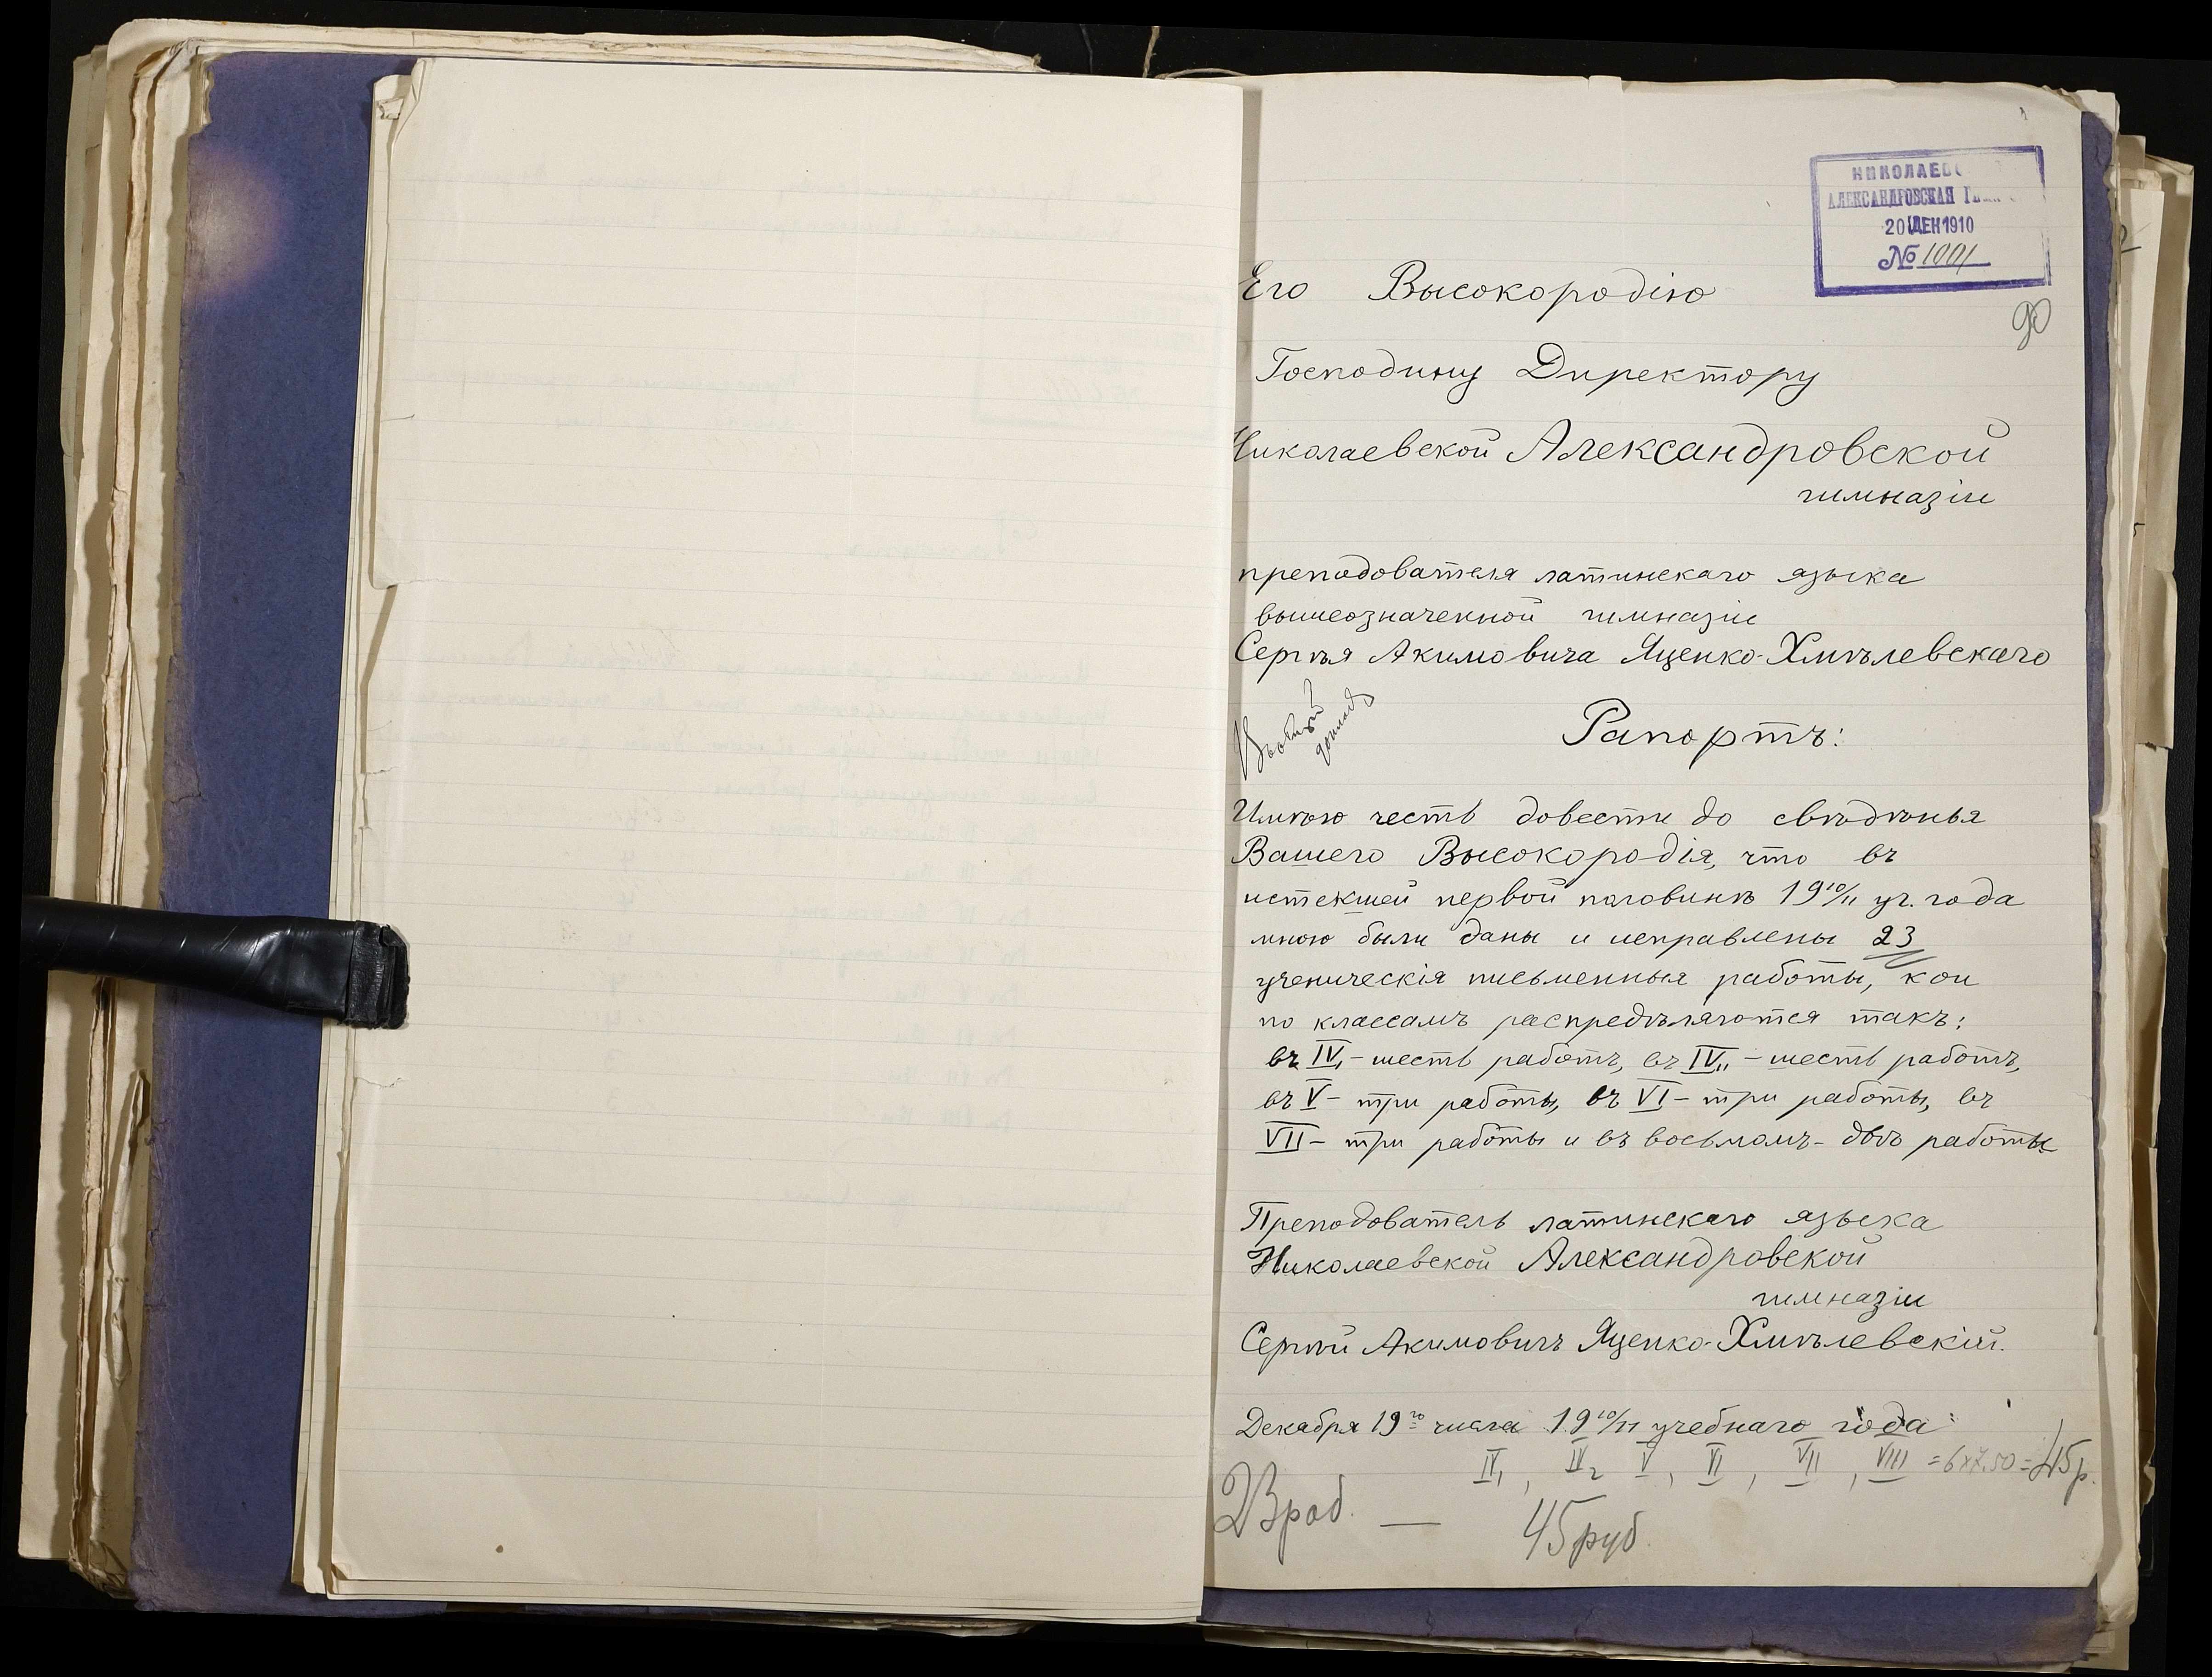 НИКОЛАЕВС
АЛЕКСАНДРОВСКАЯ
20 ДЕК 1910
№ 1001
90
Его Высокородію
Господину Директору
Николаевской Александровской
гимназіи
преподователя латинскаго языка
вышеозначенной гимназіи
Сергѣя Акимовича Яценко-Хмѣлевскаго
Рапортъ:
Имѣю честь довести до свѣдѣнья
Вашего Высокородія, что въ
истекшей первой половинѣ 19 10/11 уч. года
мною были даны и исправлены 23
ученическія письменныя работы, кои
по классамъ распредѣляются такъ:
въ IV₁ - шесть работъ, въ IV₁₁ - шесть работъ,
въ V - три работы, въ VI - три работы, въ
VII - три работы и въ восьмомъ - двѣ работы
Преподователь латинскаго языка
Николаевской Александровской
гимназіи
Сергѣй Акимовичъ Яценко-Хмѣлевскій.
Декабря 19го числа 19 10/11 учебнаго года
IV₁, IV₂ V, VI, VII, VIII = 6x7.50 = 45 р.
23 раб. — 45 руб.